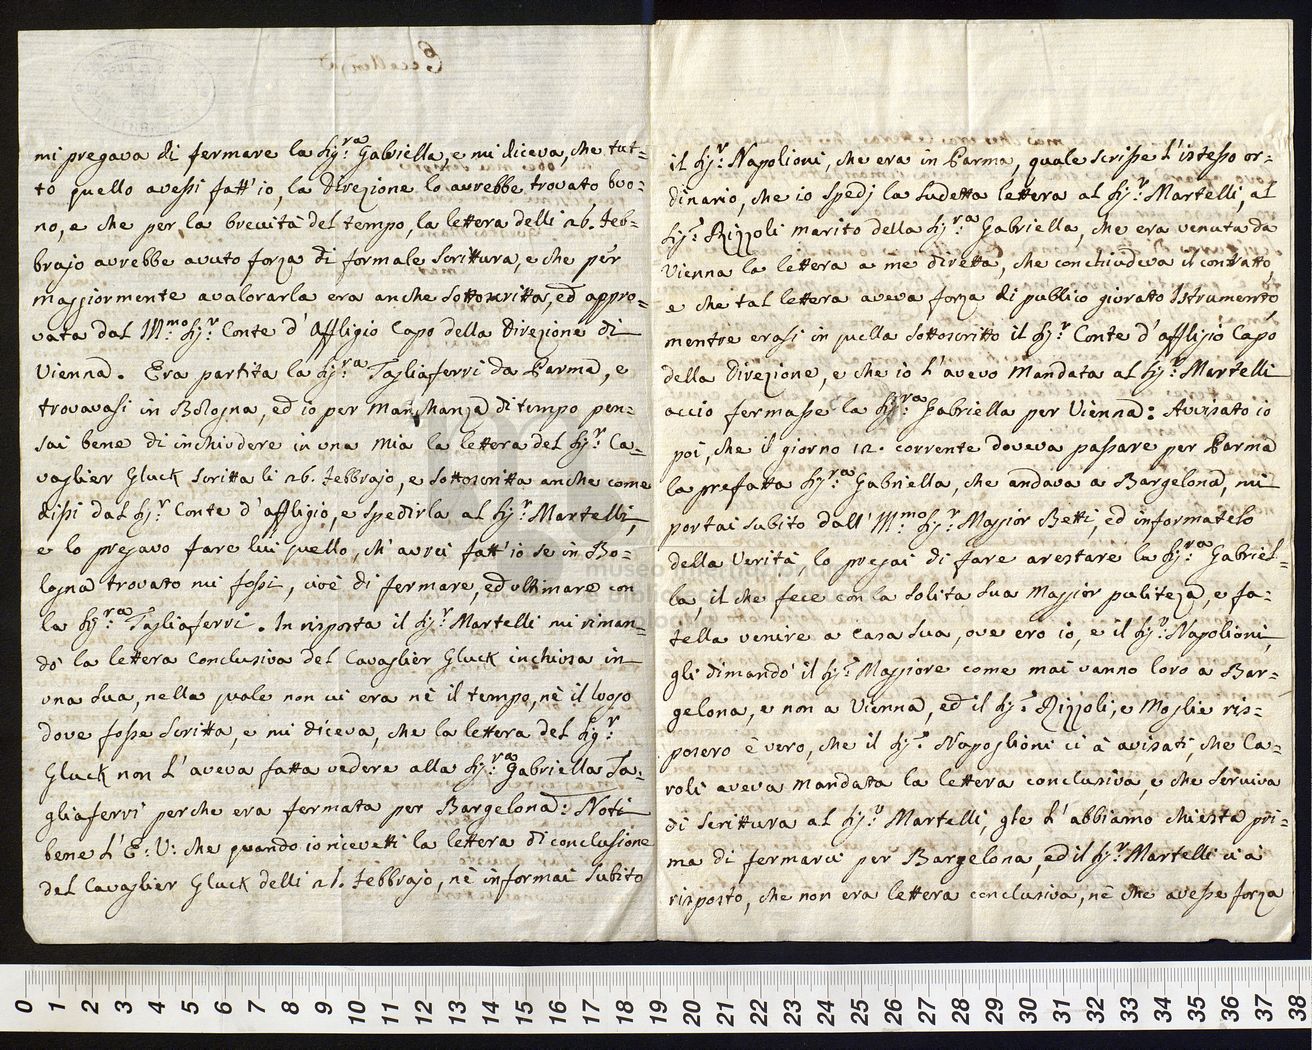 mi pregava di fermare la Sig:ra Gabriella, e mi diceva, che tut=
to quello avessi fatt'io, la Direzione lo avrebbe trovato buo=
no, e che per la brevità del tempo, la lettera delli 26. Feb=
brajo avrebbe avuto forza di formale Scrittura, e che per
maggiormente avalorarla era anche sottoscritta, ed appro=
vata dal Ill:mo Sig:r Conte d'Affligio Capo della Direzione di
Vienna. Era partita la Sig:ra Tagliaferri da Parma, e
trovavasi in Bologna, ed io per manchanza di tempo pen=
sai bene di inchiudere in una mia la lettera del Sig:r Ca=
vaglier Gluck scritta li 26. Febbrajo, e sottoscritta anche come
dissi dal Sig:r Conte d'affligio, e spedirla al Sig:r Martelli,
e lo pregavo fare lui quello, ch'avrei fatt'io se in Bo=
logna trovato mi fossi, cioè di fermare, ed ultimare con
la Sig:ra Tagliaferri. In risposta il Sig:r Martelli mi riman=
dò la lettera conclusiva del Cavaglier Gluck inchiusa in
una sua, nella quale non vi era nè il tempo, nè il luogo
dove fosse scritta, e mi diceva, che la lettera del Sig:r
Gluck non l'aveva fatta vedere alla Sig:ra Gabriella Ta=
gliaferri perche era fermata per Bargelona: Noti
bene l'E: V: che quando io ricevetti la lettera di conclusione
del Cavaglier Gluck delli 26. Febbrajo, nè informai subito
il Sig:r Napolioni, che era in Parma, quale scrisse l'istesso or=
dinario, che io spedj la sudetta lettera al Sig:r Martelli, al
Sig:r Rizzoli marito della Sig:ra Gabriella, che era venuta da
Vienna la lettera a me diretta, che conchiudeva il contratto
e che tal lettera aveva forza di publico giurato Istrumento
mentre erasi in quella sottoscritto il Sig:r Conte d'affligio Capo
della Direzione, e che io l'avevo mandata al Sig:r Martelli
accio fermasse la Sig:ra Gabriella per Vienna: Avisato io
poi, che il giorno 12. corrente doveva passare per Parma
la prefatta Sig:ra Gabriella, che andava a Bargelona, mi
portai subito dall'Ill:mo Sig:r Maggior Betti, ed informatolo
della Verità lo pregai di fare arestare la Sig:ra Gabriel=
la, il che fece con la solita sua maggior pulitezza, e fa=
tella venire a casa sua, ove ero io, e il Sig:r Napolioni,
gli dimandò il Sig:r Maggiore come mai vanno loro a Bar=
gelona, e non a Vienna, ed il Sig:r Rizzoli, e Moglie ris=
posero è vero, che il Sig:r Napoglioni ci à avisati, che Ca=
roli aveva mandata la lettera conclusiva, e che serviva
di scrittura al Sig:r Martelli, gle l'abbiamo chiesta pri=
ma di fermarci per Bargelona, ed il Sig:r Martelli ci a
risposto, che non era lettera conclusiva, nè che avesse forza
Eccellenza
museo internazionale
biblioteca